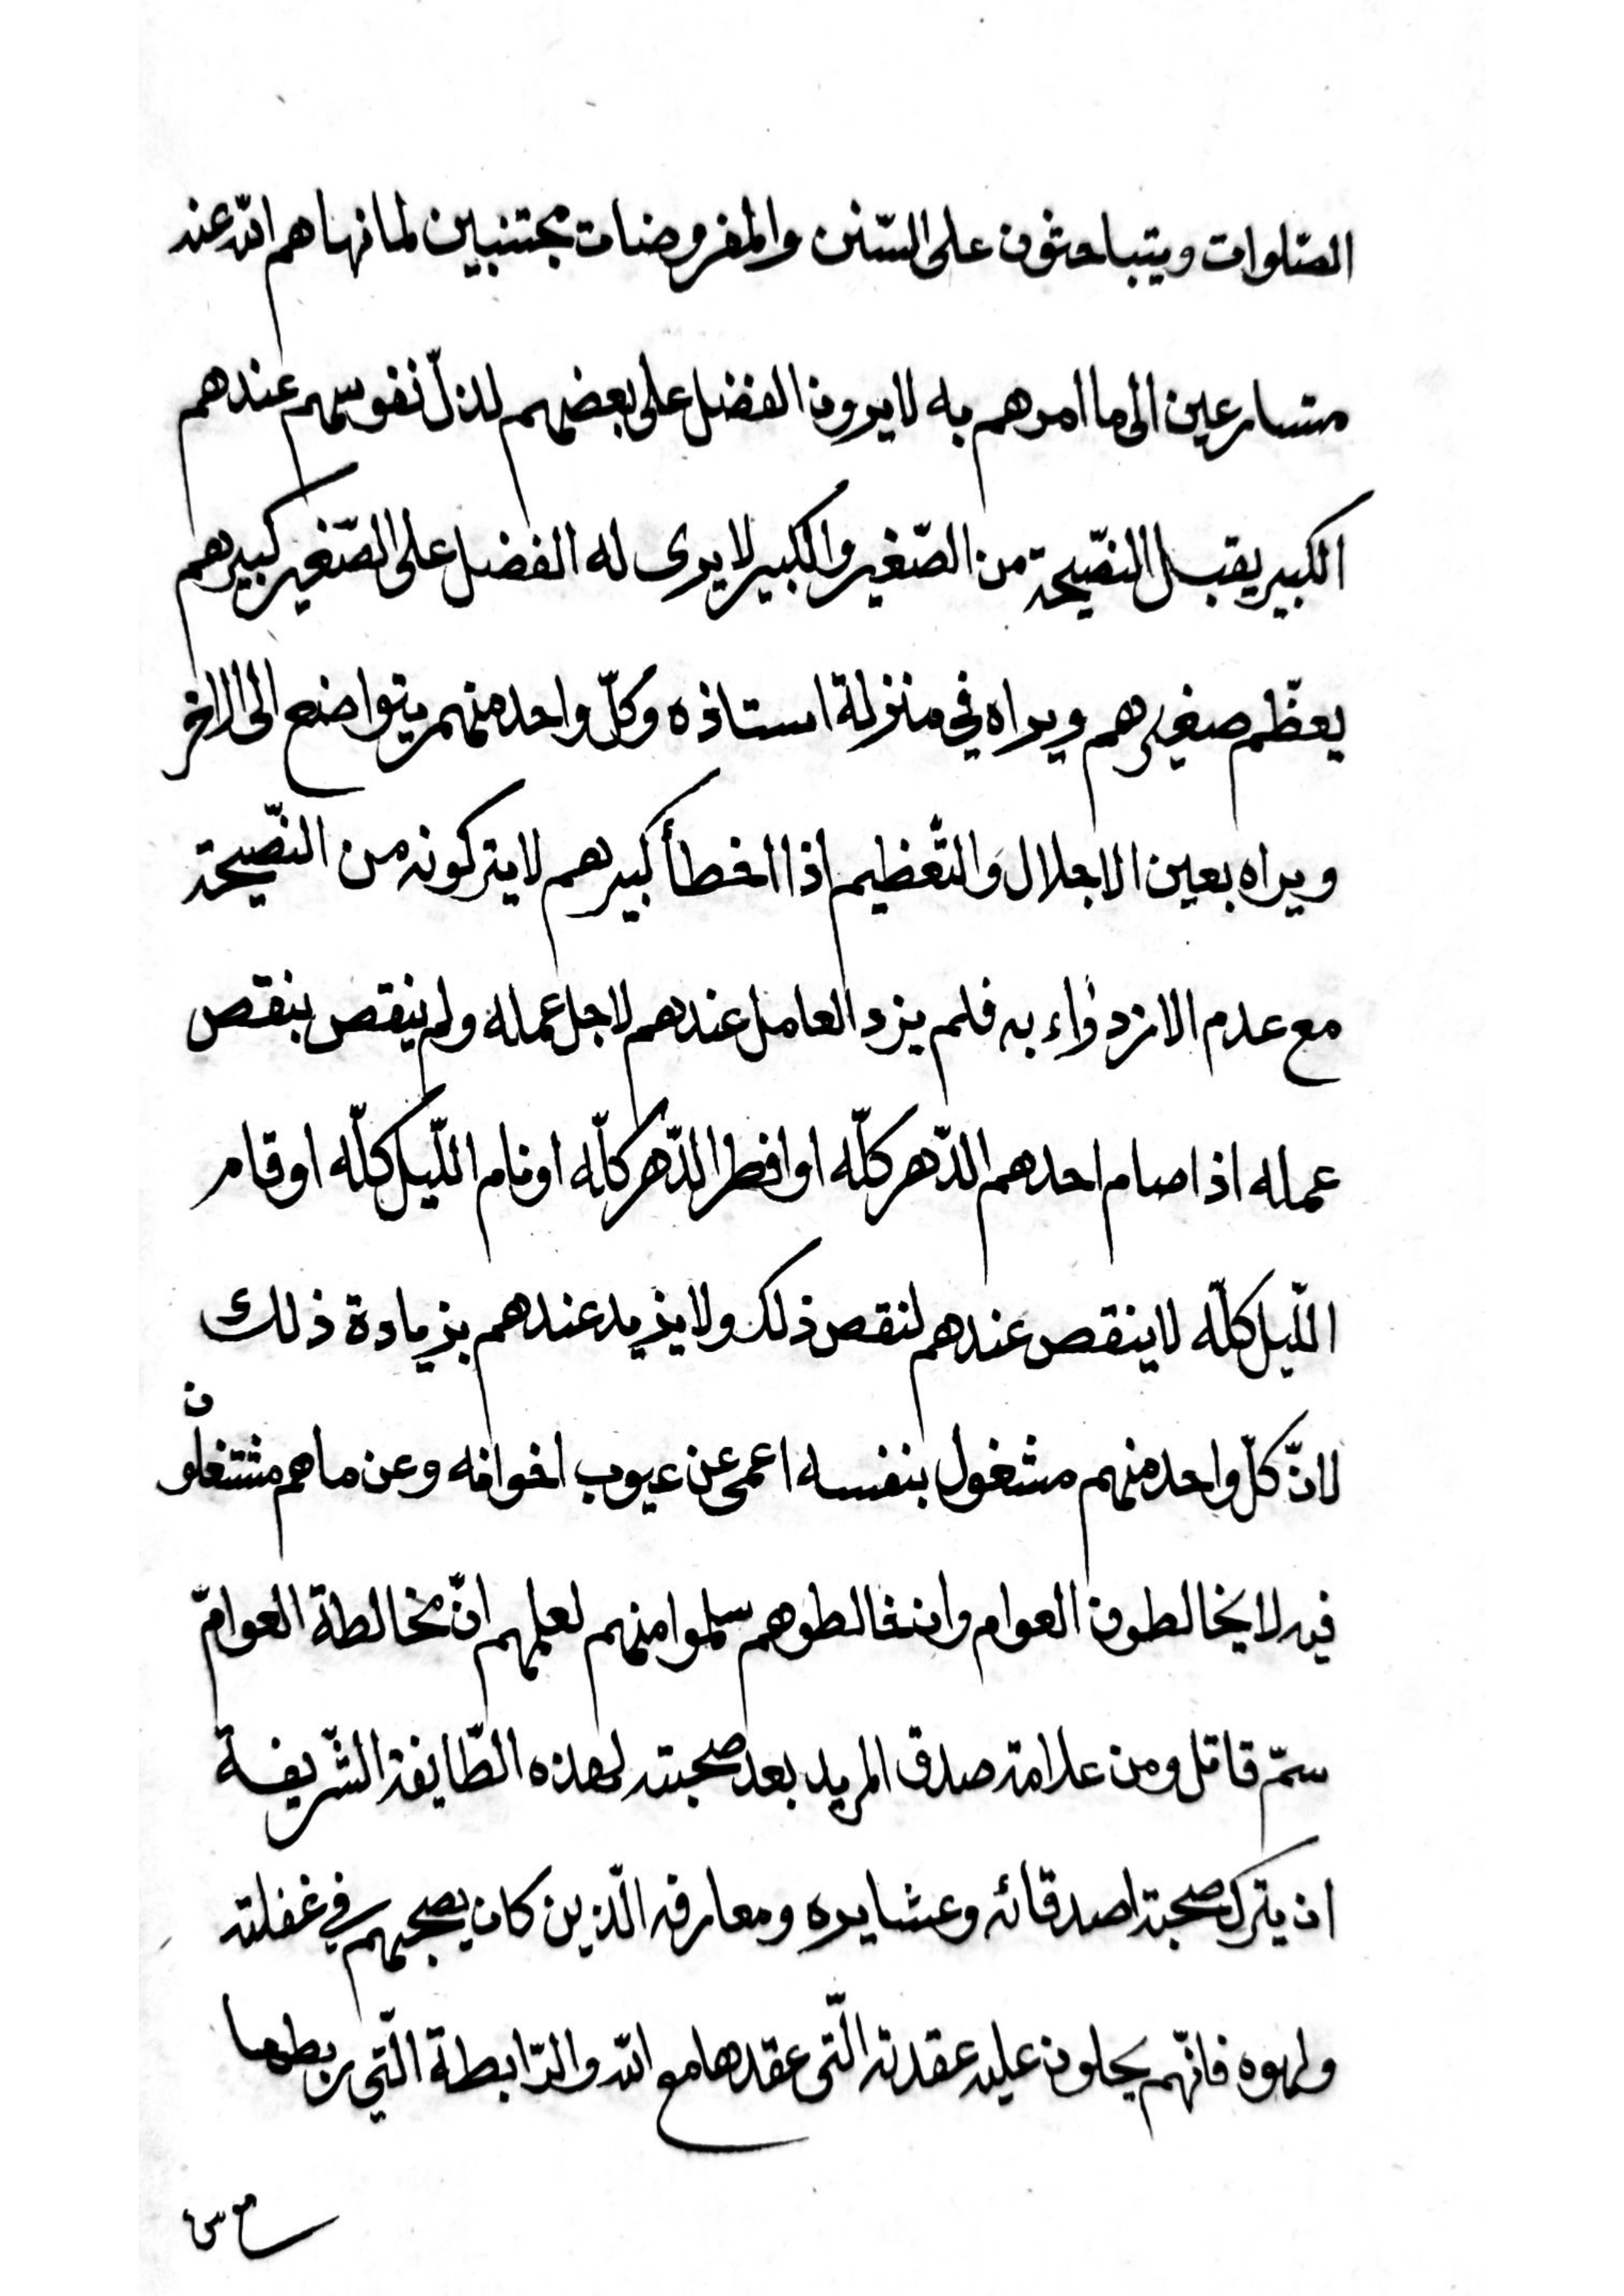 الصّلوات ويتباحثون على السّنن والمفروضات مجتنبين لما نهاهم اللّه عنه
متسارعين الى ما امرهم به لا يرون الفضل على بعضهم لذلّ نفوسهم عندهم
الكبير يقبل النّصيحة من الصّغير والكبير لا يرى له الفضل على الصّغير كبيرهم
يعظّم صغيرهم ويراه في منزلة استاذه وكلّ واحد منهم يتواضع الى الاخر
ويراه بعين الاجلال والتّعظيم اذا اخطأ كبيرهم لا يتركونه من النّصيحة
مع عدم الازدراء به فلم يزد العامل عندهم لاجل عمله ولم ينقص بنقص
عمله اذا صام احدهم الدّهر كلّه او افطر الدّهر كلّه او نام اللّيل كلّه او قام
اللّيل كلّه لا ينقص عندهم لنقص ذلك ولا يذيد عندهم بزيادة ذلك
لانّ كلّ واحد منهم مشغول بنفسه اعمى عن عيوب اخوانه وعن ما هم مشتغلون
فيه لا يخالطون العوام وان خالطوهم سلموا منهم لعلمهم انّ مخالطة العوامّ
سمّ قاتل ومن علامة صدق المريد بعد صحبته لهذه الطّايفة الشّريفة
ان يترك صحبة اصدقائه وعشايره ومعارفه الّذين كان يصحبهم في غفلته
ولهوه فانّهم يحلون عليه عقدته الّتى عقدها مع اللّه والرّابطة الّتي ربطها